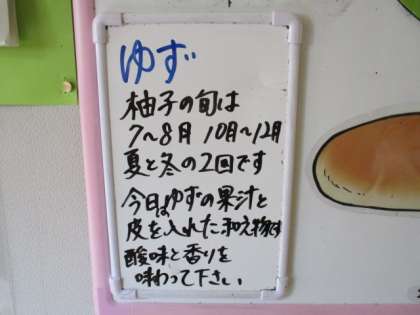 ゆず
柚子の旬は
7～8月 10月～12月
夏と冬の2回です
今日はゆずの果汁と
皮を入れた和え物です
酸味と香りを
味わって下さい